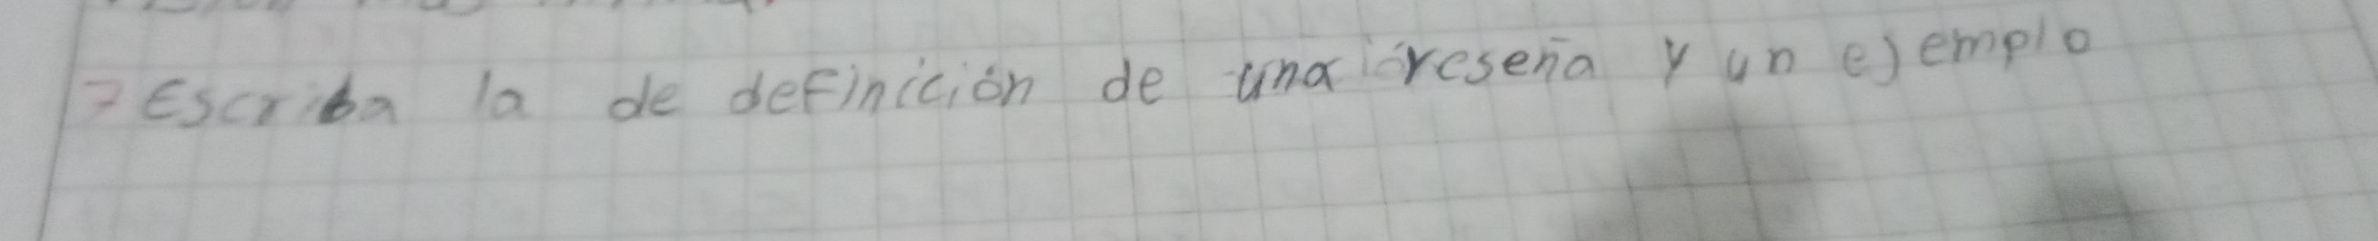 7 Escriba la de definición de una reseña y un ejemplo